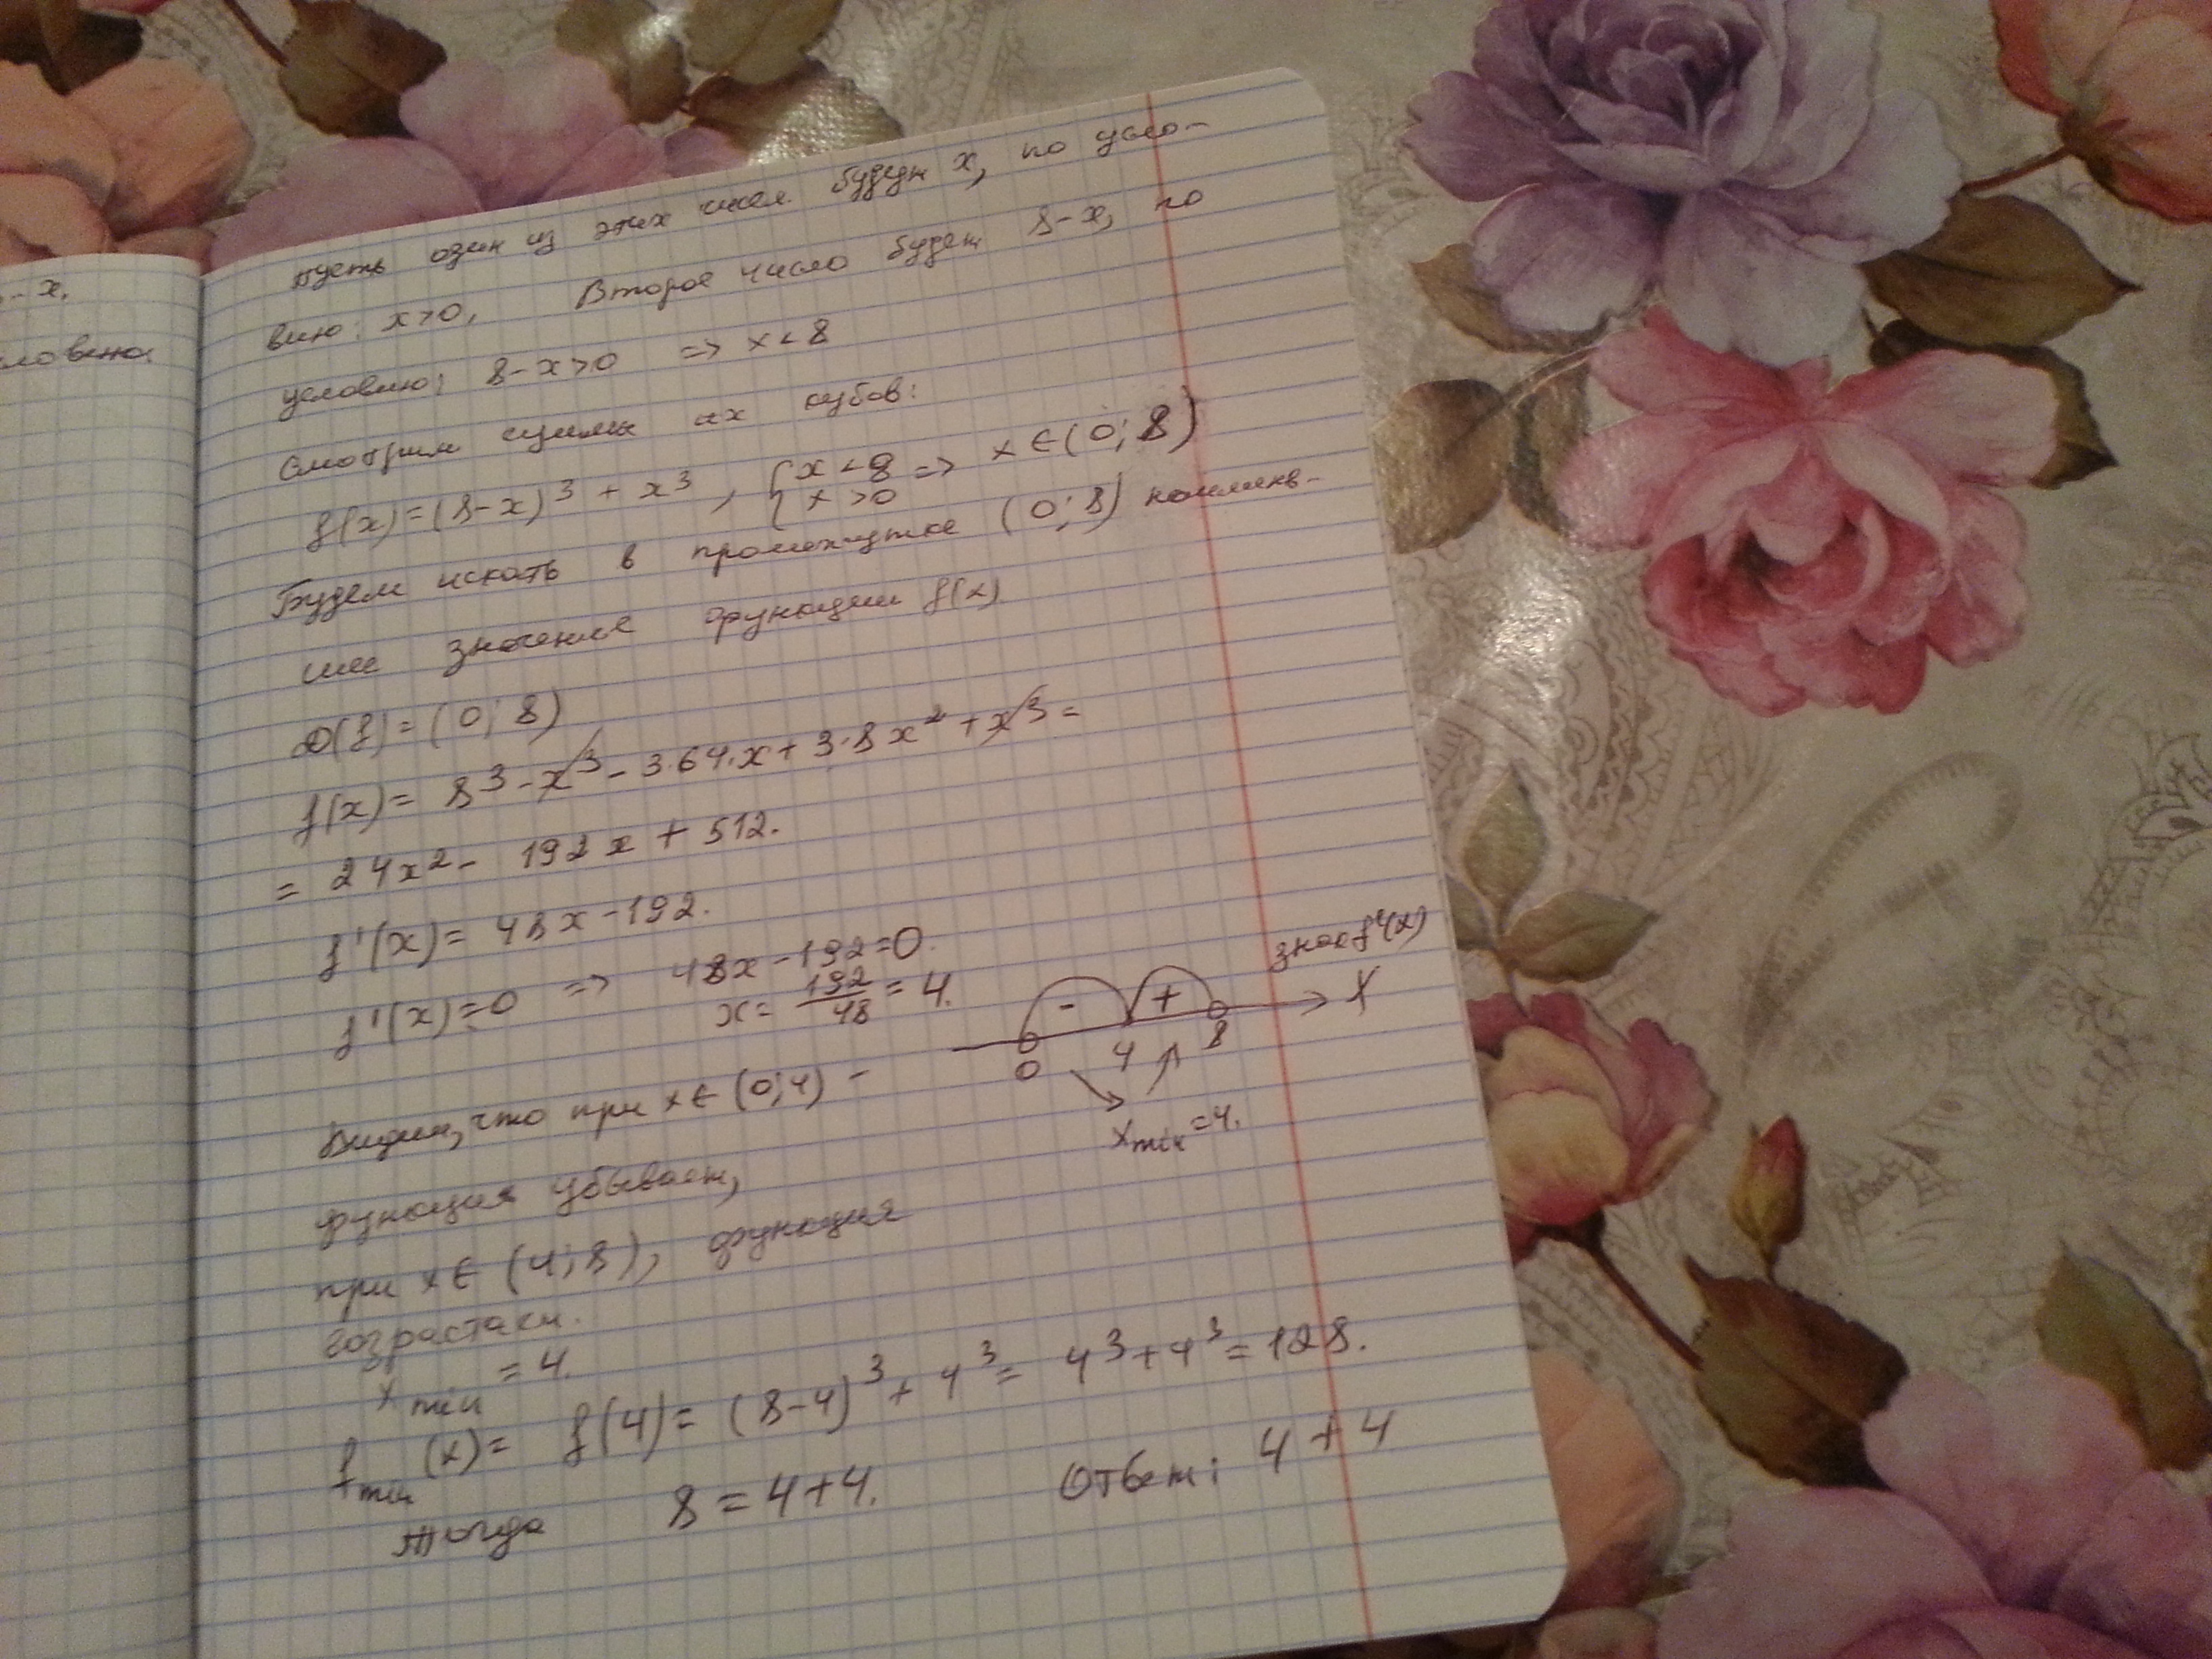 - x.
ловено
Пусть один из этих чисел будет x, по усло-
вию: x>0, Второе число будет 8-x, по
условию: 8-x>0 => x<8
Смотрим суммы их кубов:
f(x)=(8-x)³+x³, { x<8 x>0 => x∈(0;8)
Будем искать в промежутке (0;8) наименв-
шее значение функции f(x)
D(f)=(0;8)
f(x)= 8³-x³-3·64·x+3·8x²+x³=
= 24x²- 192x+512.
f'(x)= 48x-192.
f'(x)=0 => 48x-192=0.
x= 192/48 = 4.
знак f'(x)
- + X
0 4 8
x min =4.
Видим, что при x∈(0;4) -
функция убывает,
при x∈(4;8), функция
возрастает.
x min = 4.
f min (x)= f(4)=(8-4)³+4³= 4³+4³=128.
Тогда 8=4+4. Ответ: 4+4